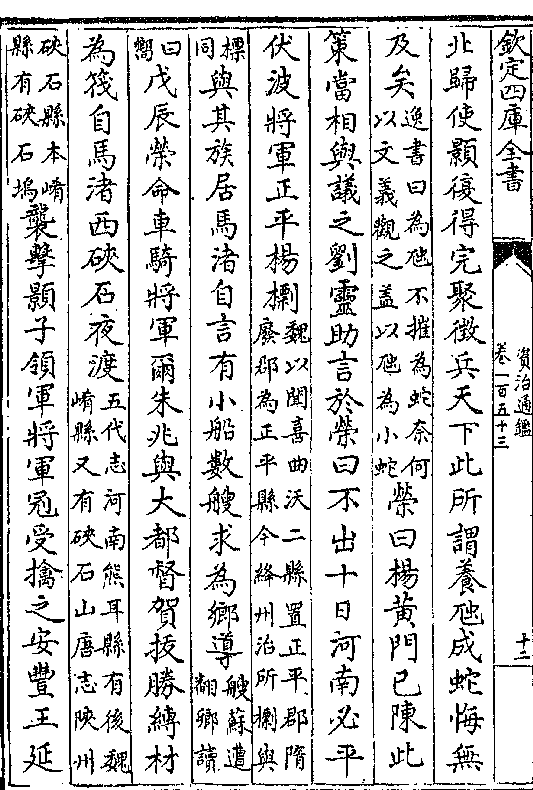 欽定四庫全書
資治通鑑
卷一百五十三
十二
北歸使顥復得完聚徵兵天下此所謂養虺成蛇悔無
及矣逸書曰為虺不摧為蛇奈何以文義觀之盖以虺為小蛇榮曰楊黄門已陳此
策當相與議之劉靈助言於榮曰不出十日河南必平
伏波將軍正平楊檦魏以聞喜曲沃二縣置正平郡隋廢郡為正平縣今絳州治所檦與
標同與其族居馬渚自言有小船數艘求為鄉導艘蘇遭翻鄉讀
曰嚮戊辰榮命車騎將軍爾朱兆與大都督賀拔勝縛材
為筏自馬渚西硤石夜渡五代志河南熊耳縣有後魏崤縣又有硤石山唐志陝州
硤石縣本崤縣有硤石塢襲擊顥子領軍將軍冠受擒之安豐王延